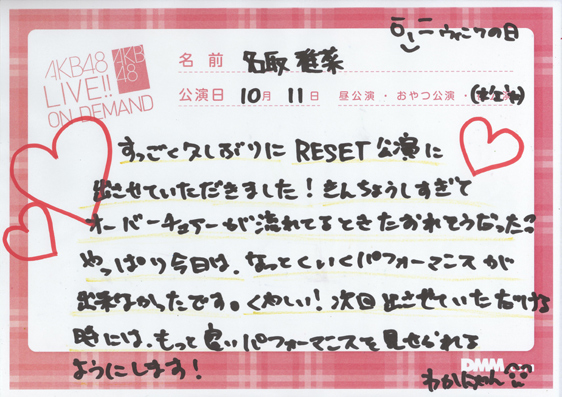 ウィンクの日
AKB48
LIVE!!
ON DEMAND
AKB
48
名前 名取 稚菜
公演日 10月 11日 昼公演・おやつ公演・
すっごく久しぶりに RESET 公演に
出させていただきました！きんちょうしすぎて
オーバーチュアーが流れてるときたおれそうだった
やっぱり今日は、なっとくいくパフォーマンスが
出来なかったです。くやしい！次回出させていただける
時には、もっと良いパフォーマンスを見せられる
ようにします！
DMM.com
わかにゃん